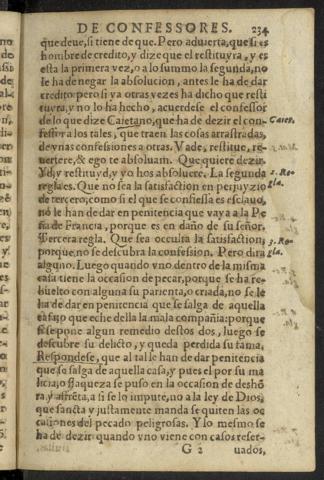 DE CONFESSORES. 234
que deue, si tiene de que. Pero aduierta, que si es
hombre de credito, y dize que el restituyra, y es
esta la primera vez, o a lo summo la segunda, no
le ha de negar la absolucion, antes le ha de dar
credito: pero si ya otras vezes ha dicho que resti
tuyra, y no lo ha hecho, acuerdese el confessor
de lo que dize Caietano, que ha de dezir el con- Caiet.
fessor a los tales, que traen las cosas arrastradas,
de vnas confessiones a otras. Vade, restitue, re-
uertere, & ego te absoluam. Que quiere dezir.
Yd, y restituyd, y yo hos absoluere. La segunda 2. Re-
regla es. Que no sea la satisfaction en perjuyzio gla.
de tercero, como si el que se confiessa es esclauo,
no le han de dar en penitencia que vaya a la Pe
ña de Francia, porque es en daño de su señor.
Tercera regla. Que sea occulta la satisfaction, 3. Re-
porque no se descubra la confession. Pero dira gla.
alguno. Luego quando vno dentro de la misma
casa tiene la occasion de pecar, porque se ha re-
buelto con alguna su parienta, o criada, no se le
ha de dar en penitencia que se salga de aquella
casa, o que eche della la mala compañia: porque
si se pone algun remedio destos dos, luego se
descubre su delicto, y queda perdida su fama.
Respondese, que al tal le han de dar penitencia
que se salga de aquella casa, y pues el por su ma
licia, o flaqueza se puso en la occasion de deshõ
ra y afrẽta, a si se lo impute, no a la ley de Dios,
que sancta y justamente manda se quiten las oc
casiones del pecado peligrosas. Y lo mesmo se
ha de dezir quando vno viene con casos reser-
G 2 uados,